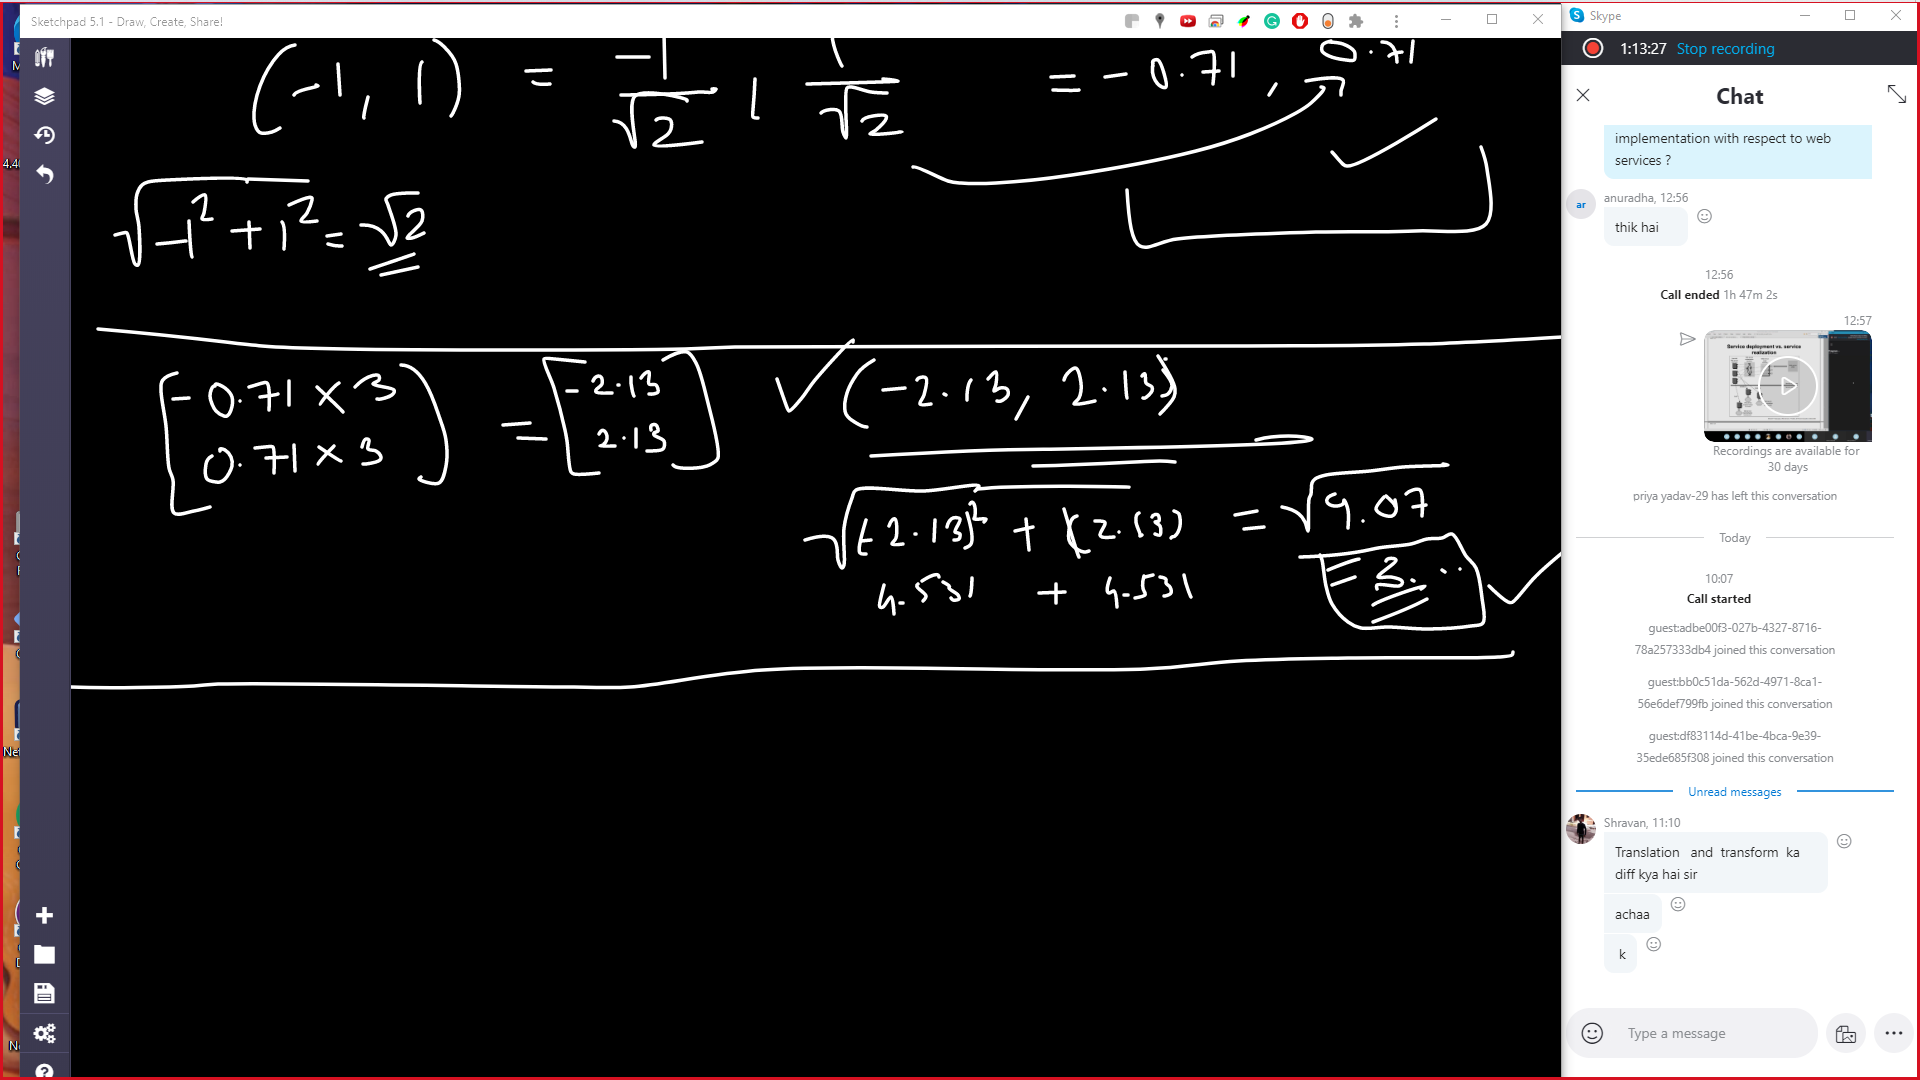 Sketchpad 5.1 - Draw, Create, Share!
(-1, 1) = -1/√2 , 1/√2 = -0.71, 0.71
√-1² + 1² = √2
[-0.71 × 3
0.71 × 3] = [-2.13
2.13] (-2.13, 2.13)
√(-2.13)² + (2.13) = √9.07
4.531 + 4.531
= 3. ..
Skype
1:13:27 Stop recording
Chat
implementation with respect to web
services ?
anuradha, 12:56
ar
thik hai
12:56
Call ended 1h 47m 2s
12:57
Service deployment vs. service
realization
Recordings are available for
30 days
priya yadav-29 has left this conversation
Today
10:07
Call started
guest:adbe00f3-027b-4327-8716-
78a257333db4 joined this conversation
guest:bb0c51da-562d-4971-8ca1-
56e6def799fb joined this conversation
guest:df83114d-41be-4bca-9e39-
35ede685f308 joined this conversation
Unread messages
Shravan, 11:10
Translation and transform ka
diff kya hai sir
achaa
k
Type a message